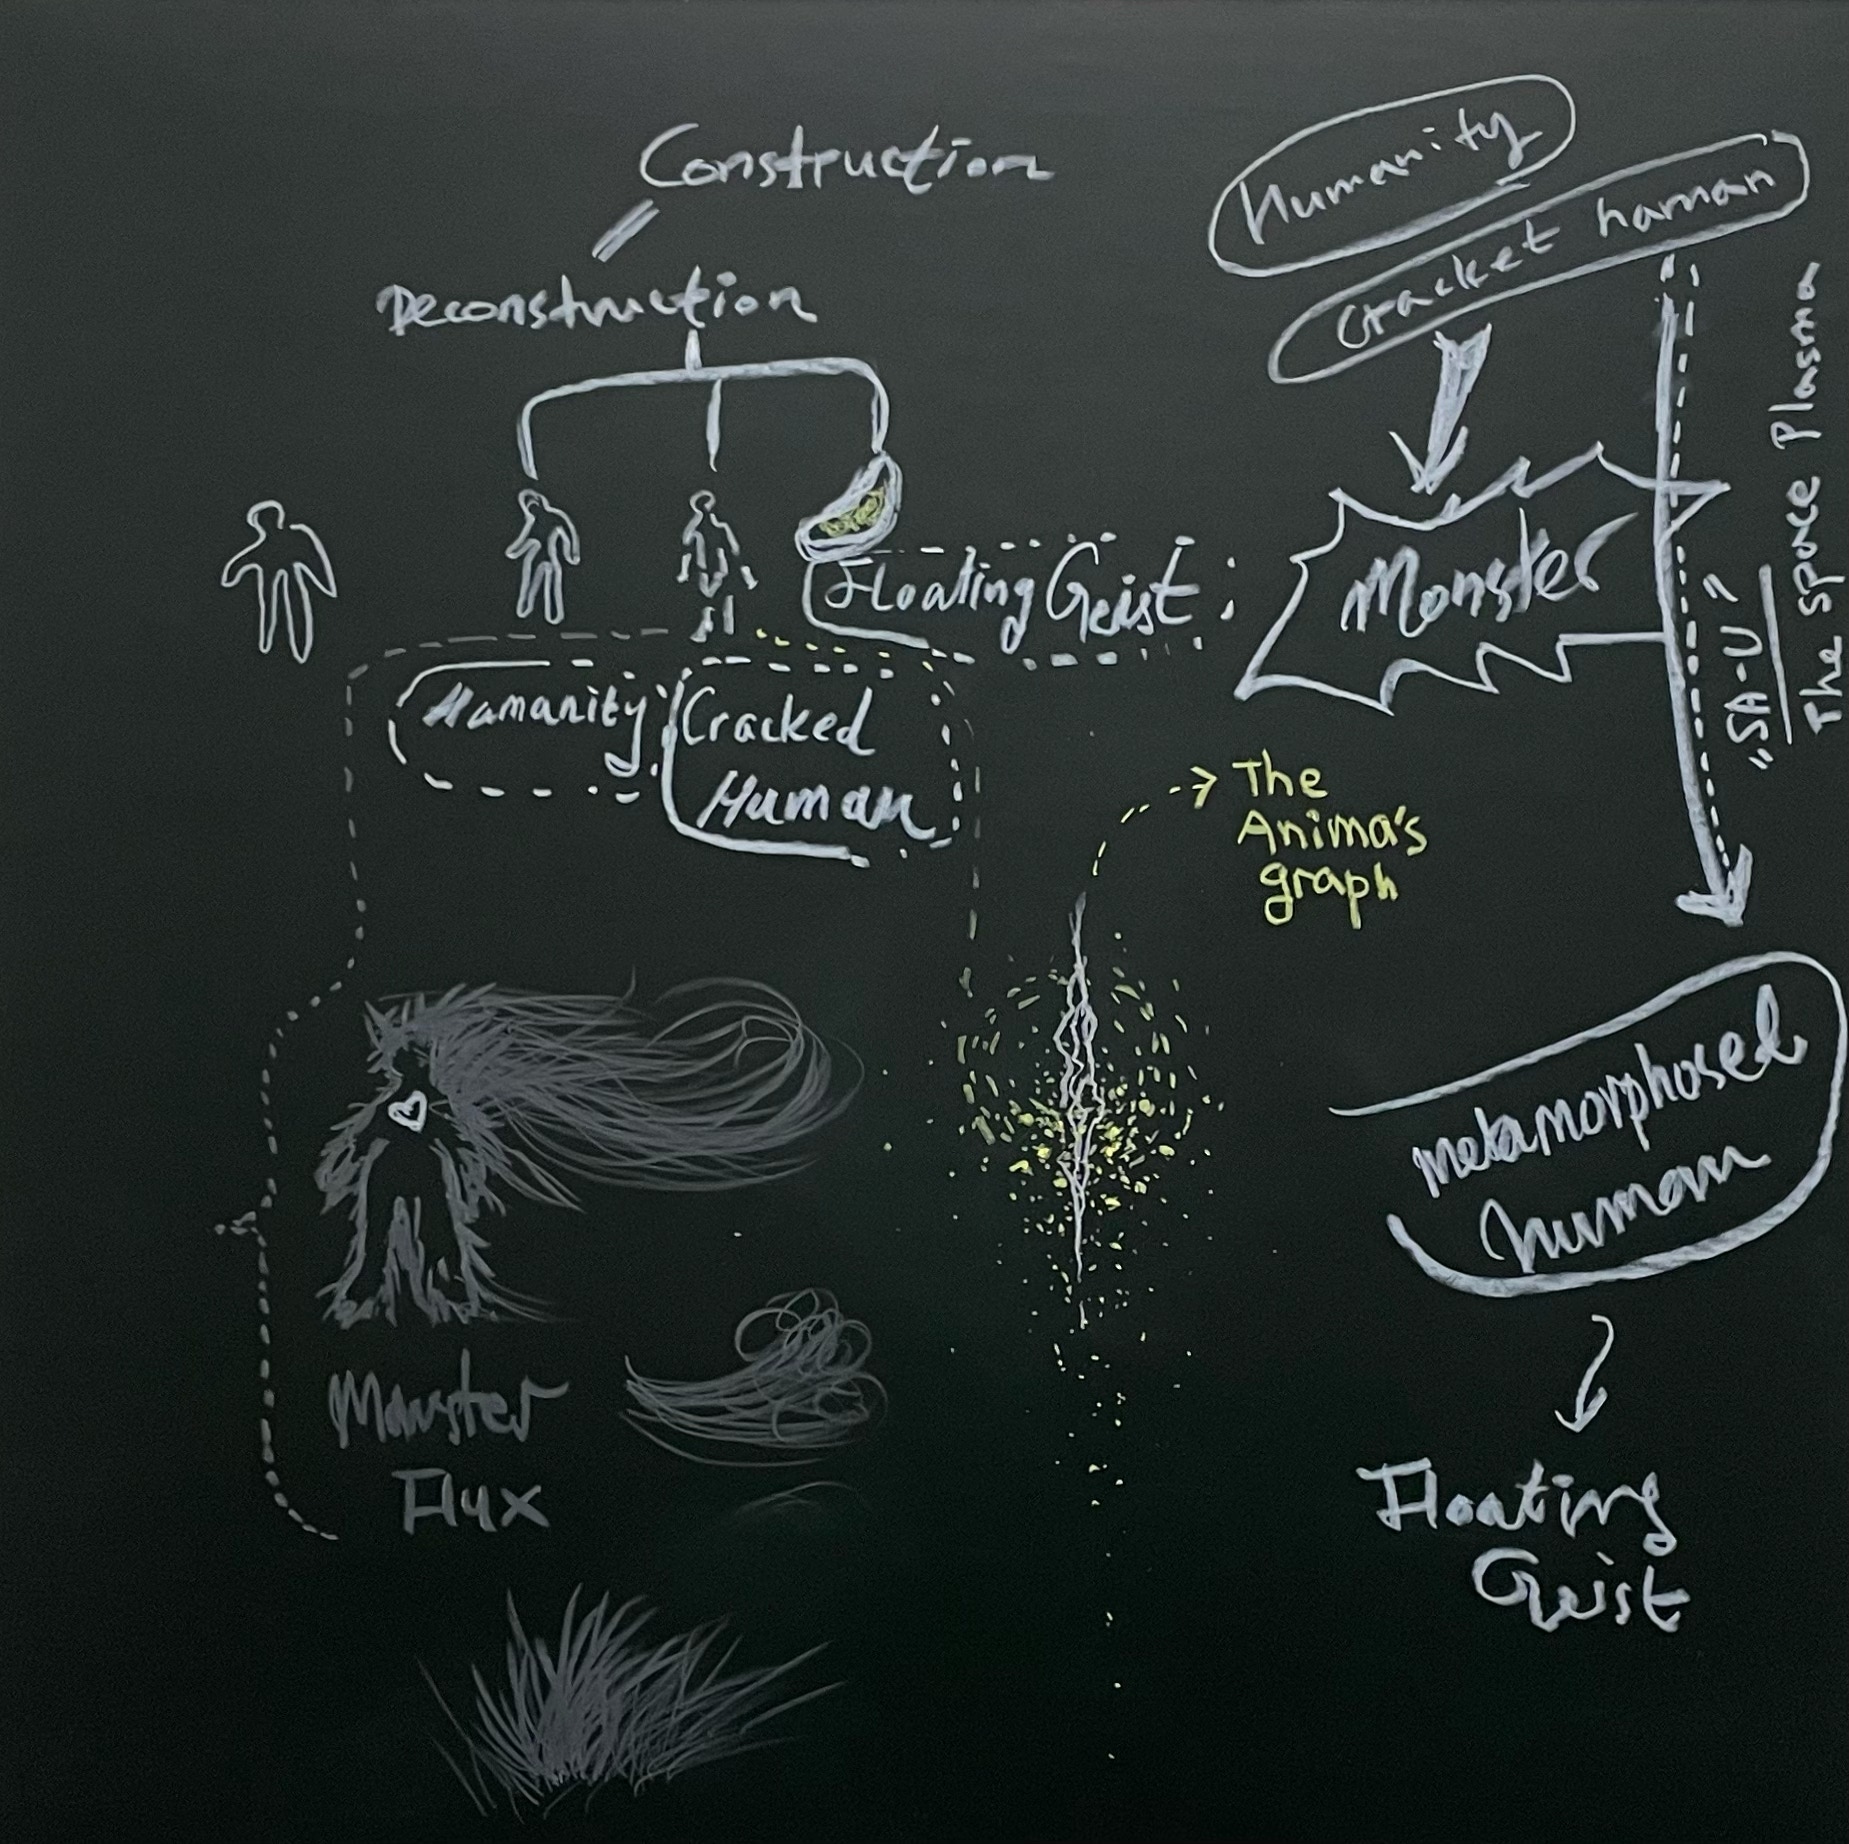 Construction
Deconstruction
Floating Geist
Humanity
Cracked
Human
Monster
Flux
The
Anima's
graph
Humanity
Cracket human
Monster
"SA-U"
The space Plasma
metamorphosed
human
Floating
Geist